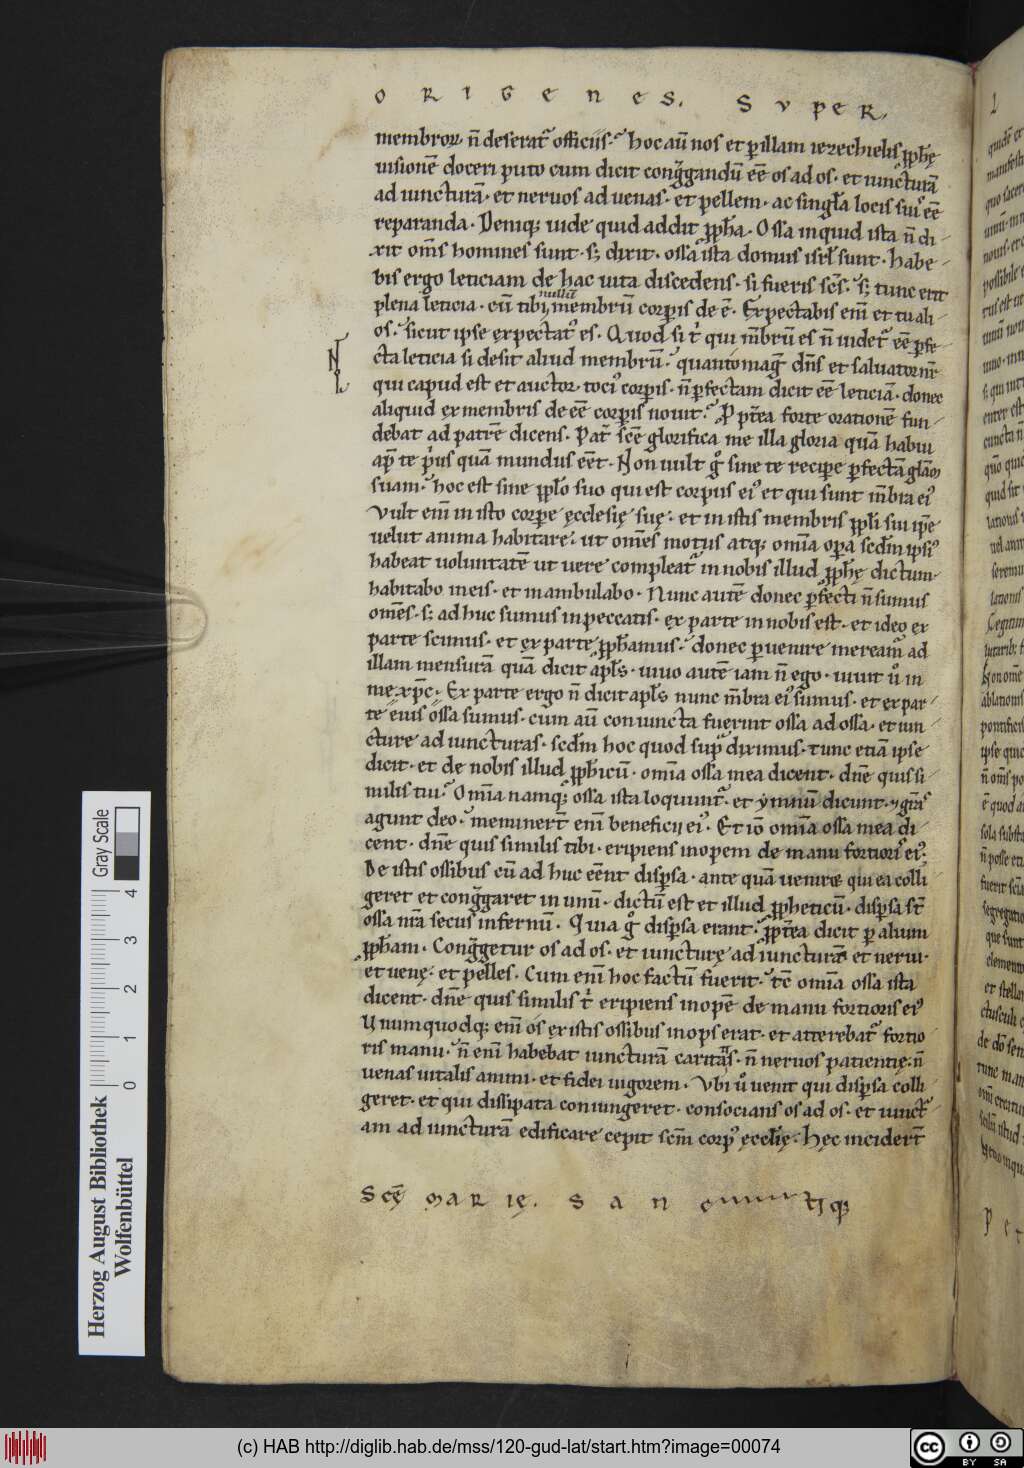 ORIGENES. SVPER.
membroꝝ. n̄ deserat᷑ officiis. hoc aū nos et ꝑ illam iezechielis ꝓph̄ę
uisionē doceri puto cum dicit congg̃andū eē os ad os. et iuncturā
ad iuncturā. et neruos ad uenas. et pellem. ac singl̄a locis suꝰ eē
reparanda. Deniq; uide quid addit ꝓph̄a. Ossa inquid ista n̄ di
xit om̄s homines sunt. s; dixit. ossa ista domus isrl̄ sunt. habe
bis ergo leticiam de hac uita discedens. si fueris scs̄. s; tunc erit
plena leticia. cū tibi nullū membrū corꝑis de ē. Expectabis eni᷑ et tu ali
os. sicut ipse expectatꝰ es. Quod si t̓ qui m̄brū es n̄ uidet᷑ eē ꝑfe
cta leticia si desit aliud membrū. quantomag̃ dn̄s et saluator nr̄
qui capud est et auctor. tociꝰ corꝑis. n̄ ꝑfectam dicit eē leticiā. donec
aliquid ex membris de eē corꝑis nouit. Ꝓpt̃ea forte orationē fun
debat ad patrē dicens. Pat̃ scē glorifica me illa gloria quā habui
ap̄ te p̓us quā mundus eēt. Non uult g̊ sine te reciꝑe ꝑfectā gl̄am
suam. hoc est sine ꝓpl̄o suo qui est corpus eiꝰ et qui sunt m̄bra eiꝰ
Vult eni᷑ in isto corꝑe ęcclesię suę. et in istis membris ꝓpl̄i sui ip̄e
uelut anima habitare. ut om̄es motus atq; om̄ia oꝑa scd̄m ipsiꝰ
habeat uoluntatē ut uere compleat᷑ in nobis illud ꝓph̄ę dictum.
habitabo in eis. et inambulabo. Nunc autē donec ꝑfecti n̄ sumus
om̄es. s; ad huc sumus in peccatis. ex parte in nobis est. et ideo ex
parte scimus. et ex parte ꝓph̄amus. donec ꝑuenire meream᷑ ad
illam mensurā quā dicit apl̄s. uiuo autē iam n̄ ego. uiuit ů in
me xp̄c. Ex parte ergo n̄ dicit apl̄s nunc m̄bra eiꝰ sumus. et ex par
te eius ossa sumus. cum aū coniuncta fuerint ossa ad ossa. et iun
cture ad iuncturas. scd̄m hoc quod sup̃ diximus. tunc etiā ipse
dicit. et de nobis illud ꝓph̄icū. om̄ia ossa mea dicent. dn̄e quis si
milis tui. Om̄ia namq; ossa ista loquunt᷑. et ymnū dicunt. ⁊ gr̄as
agunt deo. meminert̄ eni᷑ beneficii eiꝰ. Et iō om̄ia ossa mea di
cent. dn̄e quis similis tibi. eripiens inopem de manu fortiorꝭ eiꝰ.
De istis ossibus cū ad huc eēnt disꝑsa. ante quā uenire qui ea colli
geret et congg̃aret in unū. dictū est et illud ꝓpheticū. disꝑsa st̄
ossa nr̄a secus infernū. Quia g̊ disꝑsa erant. ꝓpt̃ea dicit ꝑ alium
ꝓph̄am. Congg̃etur os ad os. et iuncturę ad iuncturā. et nerui.
et uenę. et pelles. Cum eni᷑ hoc factū fuerit. tc̄ om̄ia ossa ista
dicent. dn̄e quis similis t̓ eripiens inopē de manu fortioris eiꝰ
Vnumquodq; eni᷑ os ex istis ossibus inops erat. et atterebat᷑ fortio
ris manu. n̄ eni᷑ habebat iuncturā caritatis. n̄ neruos patientię. n̄
uenas uitalis animi. et fidei uigorem. Vbi ů uenit qui disꝑsa colli
geret. et qui dissipata coniungeret. consocians os ad os. et iunct
am ad iuncturā edificare cepit scm̄ corpꝰ ęccl̄ię. hęc inciderī
Scē MARIę. SAN
Herzog August Bibliothek
Wolfenbüttel
Gray Scale
0 1 2 3 4
(c) HAB http://diglib.hab.de/mss/120-gud-lat/start.htm?image=00074
cc BY SA